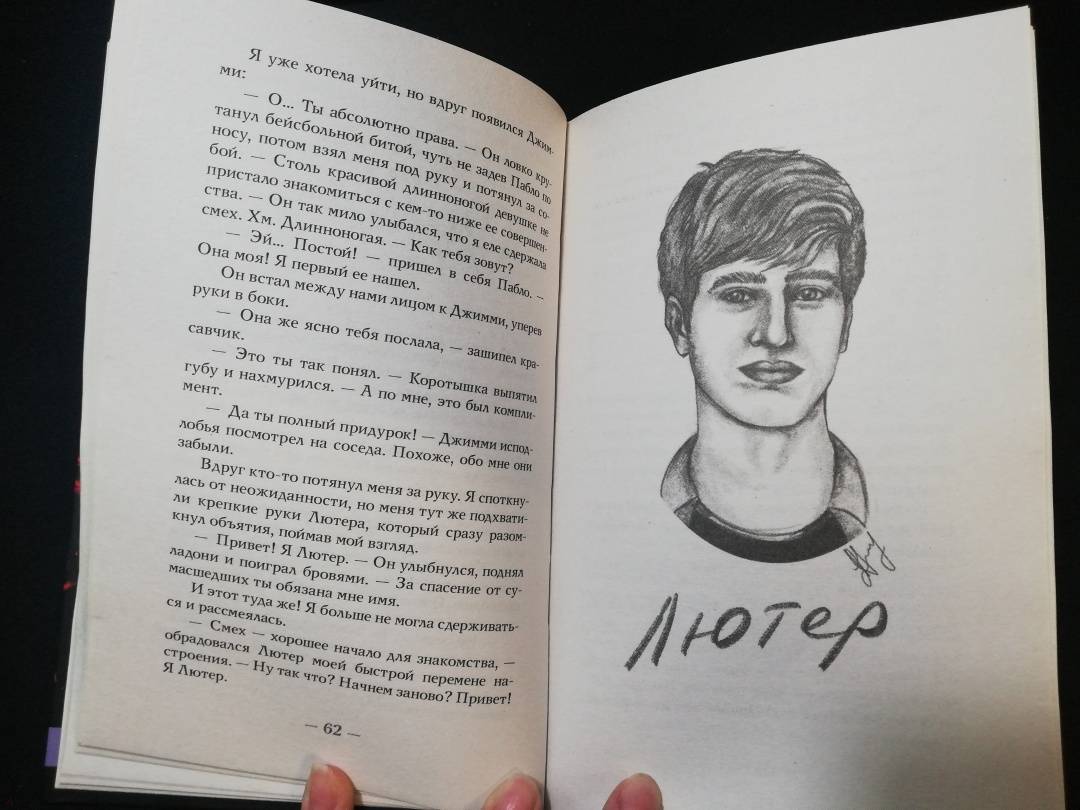 Я уже хотела уйти, но вдруг появился Джим-
ми:
— О... Ты абсолютно права. — Он ловко кру-
танул бейсбольной битой, чуть не задев Пабло по
носу, потом взял меня под руку и потянул за со-
бой. — Столь красивой длинноногой девушке не
пристало знакомиться с кем-то ниже ее совершен-
ства. — Он так мило улыбался, что я еле сдержала
смех. Хм. Длинноногая. — Как тебя зовут?
— Эй... Постой! — пришел в себя Пабло. —
Она моя! Я первый ее нашел.
Он встал между нами лицом к Джимми, уперев
руки в боки.
— Она же ясно тебя послала, — зашипел кра-
савчик.
— Это ты так понял. — Коротышка выпятил
губу и нахмурился. — А по мне, это был компли-
мент.
— Да ты полный придурок! — Джимми испод-
лобья посмотрел на соседа. Похоже, обо мне они
забыли.
Вдруг кто-то потянул меня за руку. Я споткну-
лась от неожиданности, но меня тут же подхвати-
ли крепкие руки Лютера, который сразу разом-
кнул объятия, поймав мой взгляд.
— Привет! Я Лютер. — Он улыбнулся, поднял
ладони и поиграл бровями. — За спасение от су-
масшедших ты обязана мне имя.
И этот туда же! Я больше не могла сдерживать-
ся и рассмеялась.
— Смех — хорошее начало для знакомства, —
обрадовался Лютер моей быстрой перемене на-
строения. — Ну так что? Начнем заново? Привет!
Я Лютер.
— 62 —
Лютер